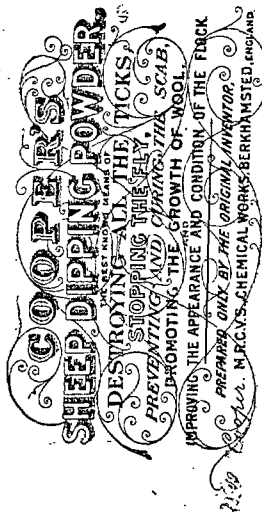 COOPER'S
SHEEP DIPPING POWDER.
THE BEST KNOWN MEANS OF
DESTROYING ALL THE TICKS,
STOPPING THE FLY,
PREVENTING AND CURING THE SCAB,
PROMOTING THE GROWTH OF WOOL,
AND
IMPROVING THE APPEARANCE AND CONDITION OF THE FLOCK.
PREPARED ONLY BY THE ORIGINAL INVENTOR,
Cooper. M.R.C.V.S. CHEMICAL WORKS. BERKHAMSTED, ENGLAND.